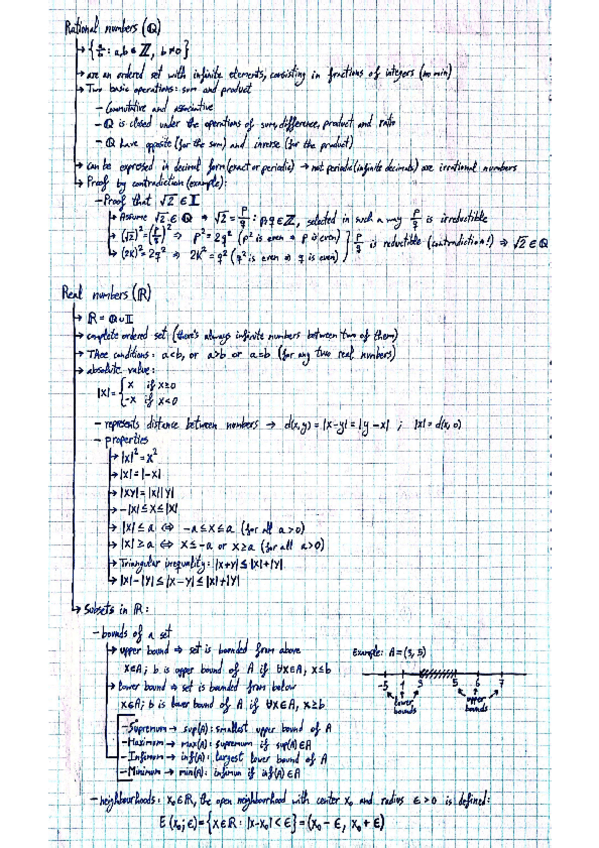 Rational numbers (ℚ)
→ {a/b : a,b ∈ ℤ, b ≠ 0}
→ are an ordered set with infinite elements, consisting in fractions of integers (no min)
→ Two basic operations: sum and product
- Commutative and associative
- ℚ is closed under the operations of sum, difference, product and ratio
- ℚ have opposite (for the sum) and inverse (for the product)
→ can be expressed in decimal form (exact or periodic) → not periodic (infinite decimals) are irrational numbers
→ Proof by contradiction (example):
- Proof that √2 ∈ 𝕀
→ Assume √2 ∈ ℚ ⇒ √2 = p/q : p,q ∈ ℤ, selected in such a way p/q is irreductible
→ (√2)² = (p/q)² ⇒ p² = 2q² (p² is even ⇒ p is even) } p/q is reductible (contradiction!) ⇒ √2 ∈ ℚ
→ (2K)² = 2q² ⇒ 2K² = q² (q² is even ⇒ q is even)
Real numbers (ℝ)
→ ℝ = ℚ ∪ 𝕀
→ complete ordered set (there's always infinite numbers between two of them)
→ Thee conditions: a<b, or a>b or a=b (for any two real numbers)
→ absolute value:
|x| = { x if x≥0
-x if x<0
- represents distance between numbers → d(x,y) = |x-y| = |y-x| ; |x| = d(x,0)
- properties
→ |x|² = x²
→ |x| = |-x|
→ |xy| = |x||y|
→ -|x| ≤ x ≤ |x|
→ |x| ≤ a ⇔ -a ≤ x ≤ a (for all a>0)
→ |x| ≥ a ⇔ x ≤ -a or x ≥ a (for all a>0)
→ Triangular inequality: |x+y| ≤ |x|+|y|
→ |x|-|y| ≤ |x-y| ≤ |x|+|y|
→ Subsets in ℝ:
- bounds of a set
→ upper bound ⇒ set is bounded from above
x∈A; b is upper bound of A if ∀x∈A, x≤b
→ lower bound ⇒ set is bounded from below
x∈A; b is lower bound of A if ∀x∈A, x≥b
Example: A = (3, 5)
-5 1 3 5 6 7
lower bounds
upper bounds
- Supremum → sup(A): smallest upper bound of A
- Maximum → max(A): supremum if sup(A)∈A
- Infimum → inf(A): largest lower bound of A
- Minimum → min(A): infimum if inf(A)∈A
- neighbourhoods: x₀∈ℝ, the open neighbourhood with center x₀ and radius ε > 0 is defined:
E(x₀; ε) = {x∈ℝ : |x-x₀| < ε} = (x₀ - ε, x₀ + ε)